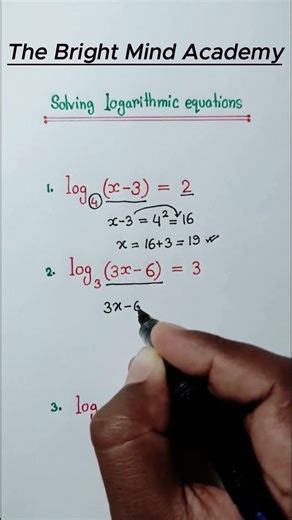 The Bright Mind Academy
Solving logarithmic equations
1. log₄(x-3) = 2
x-3 = 4² = 16
x = 16+3 = 19
2. log₃(3x-6) = 3
3x-6
3. log